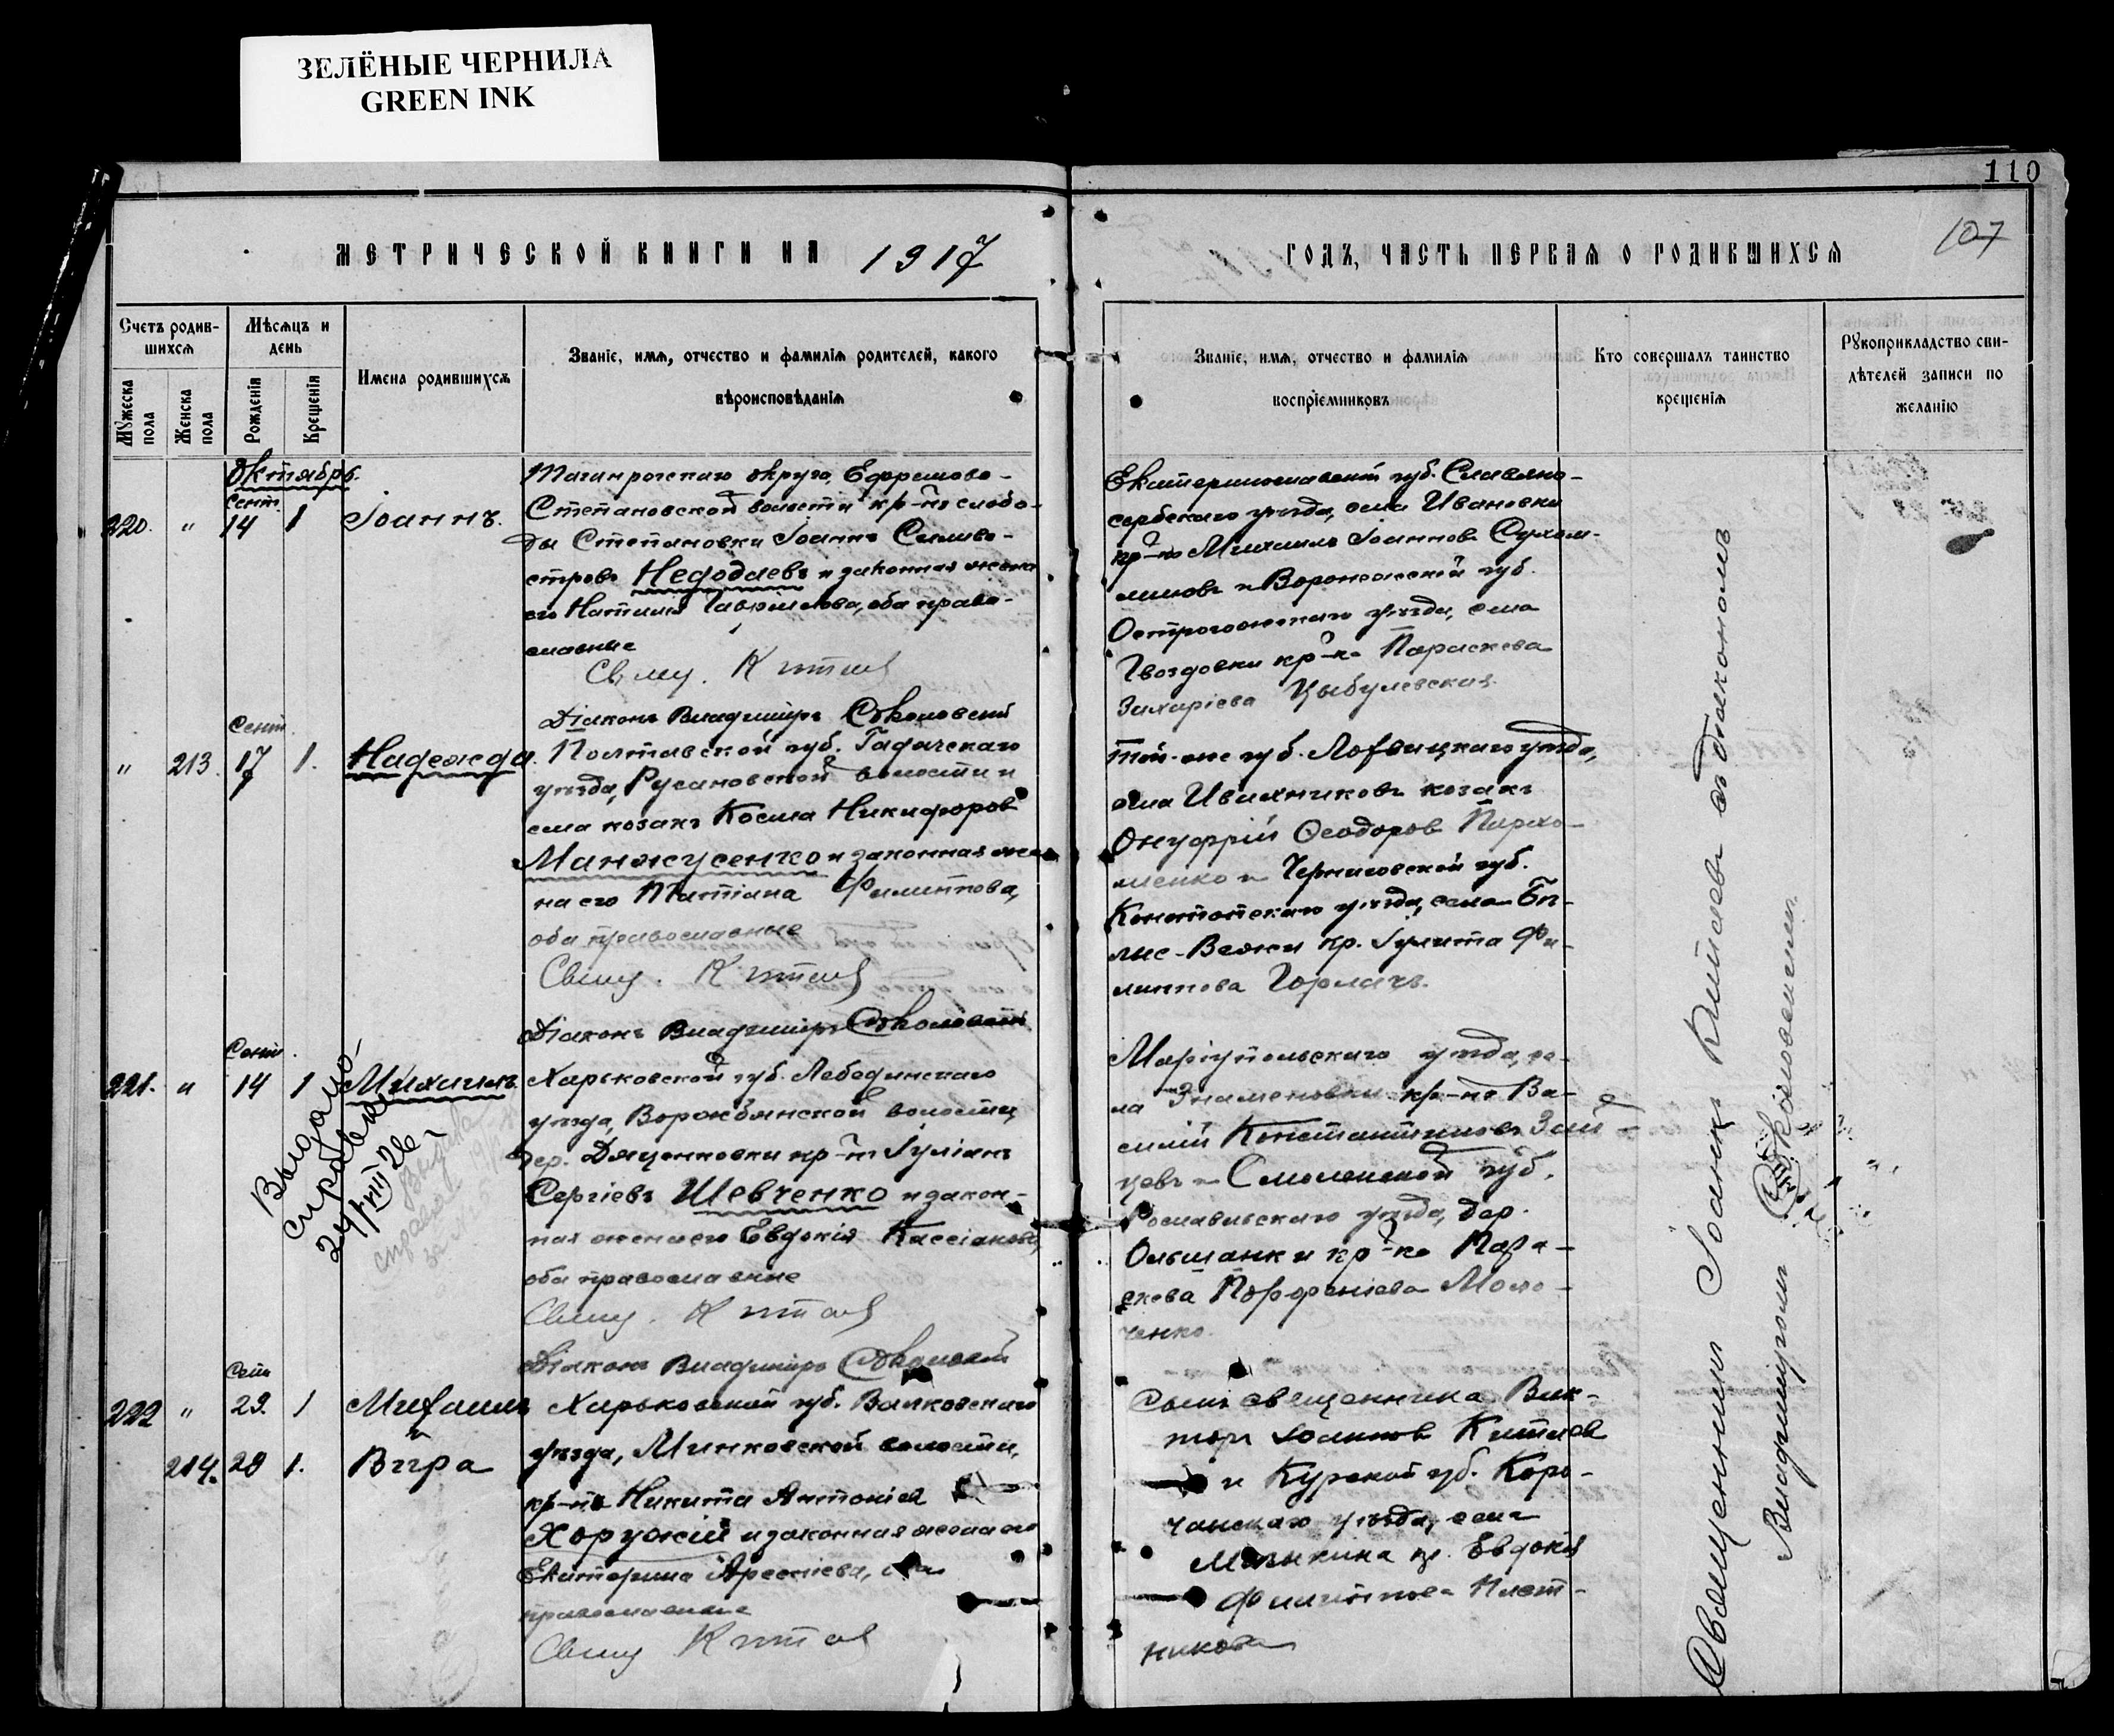 ЗЕЛЁНЫЕ ЧЕРНИЛА
GREEN INK
110
107
МЕТРИЧЕСКОЙ КНИГИ НА 1917
ГОДЪ, ЧАСТЬ ПЕРВАЯ О РОДИВШИХСЯ
Счетъ родив-
шихся
Мужеска пола
Женска пола
Мѣсяцъ и
день
Рожденія
Крещенія
Имена родившихся
Званіе, имя, отчество и фамилія родителей, какого
вѣроисповѣданія
Званіе, имя, отчество и фамилія
воспріемниковъ
Кто совершалъ таинство
крещенія
Рукоприкладство сви-
дѣтелей записи по
желанію
Октябрь.
Сент.
220. " 14 1 Іоаннъ.
Таганрогскаго округа, Ефремово-
Степановской волости кр-нъ слобо-
ды Степановки Іоаннъ Силиве-
стровъ Недодаевъ и законная жена
его Наталія Гаврилова, оба право-
славные
Свящ. Китаев
Діаконъ Владиміръ Соколовскій
Екатеринославской губ. Славяно-
сербскаго уѣзда, села Ивановки
кр-нъ Михаилъ Іоанновъ Сухом-
линовъ и Воронежской губ.
Острогожскаго уѣзда, села
Гвоздовки кр-ка Параскева
Захаріева Цыбулевская.
Сент.
" 213. 17 1. Надежда.
Полтавской губ. Гадячскаго
уѣзда, Русановской волости и
села козакъ Косма Никифоров
Манжусенко и законная же-
на его Татіана Филиппова,
оба православные
Свящ. Китаев
Діаконъ Владиміръ Соколовскій
той-же губ. Лохвицкаго уѣзда,
села Ивахниковъ козакъ
Онуфрій Ѳеодоров Пархо-
менко и Черниговской губ.
Конотопскаго уѣзда, села Бѣ-
лые-Вежи кр. Іулита Фи-
липпова Горлачъ.
Сент.
221. " 14 1 Михаилъ
Выдано
справка
24/VIII 26 г
Выдана
справка
Харьковской губ. Лебединскаго
уѣзда, Ворожбянской волости,
дер. Дяченковки кр-нъ Іуліанъ
Сергіевъ Шевченко и закон-
ная жена его Евдокія Кассіанова,
оба православные
Свящ. Китаев
Діаконъ Владиміръ Соколовскій
Маріупольскаго уѣзда, се-
ла Знаменовки кр-нъ Ва-
силій Константиновъ Зай-
цевъ и Смоленской губ.
Рославльскаго уѣзда, дер.
Ольшанки кр-ка Пара-
скева Порфиріева Моло-
ченко.
Сент
222 " 29. 1 Михаилъ
и
214. 28 1. Вѣра
Харьковской губ. Валковскаго
уѣзда, Минковской волости,
кр-нъ Никита Антоніев
Хоружій и законная жена его
Екатерина Арсеніева, оба
православные
Свящ Китаев
Сынъ священника Вик-
торъ Іоаннов Китаев
и Курской губ. Коро-
чанскаго уѣзда, села
кр. Евдокія
Филиппова Плот-
никова
Священникъ Іоаннъ Китаевъ съ діакономъ
Владиміромъ Соколовскимъ.